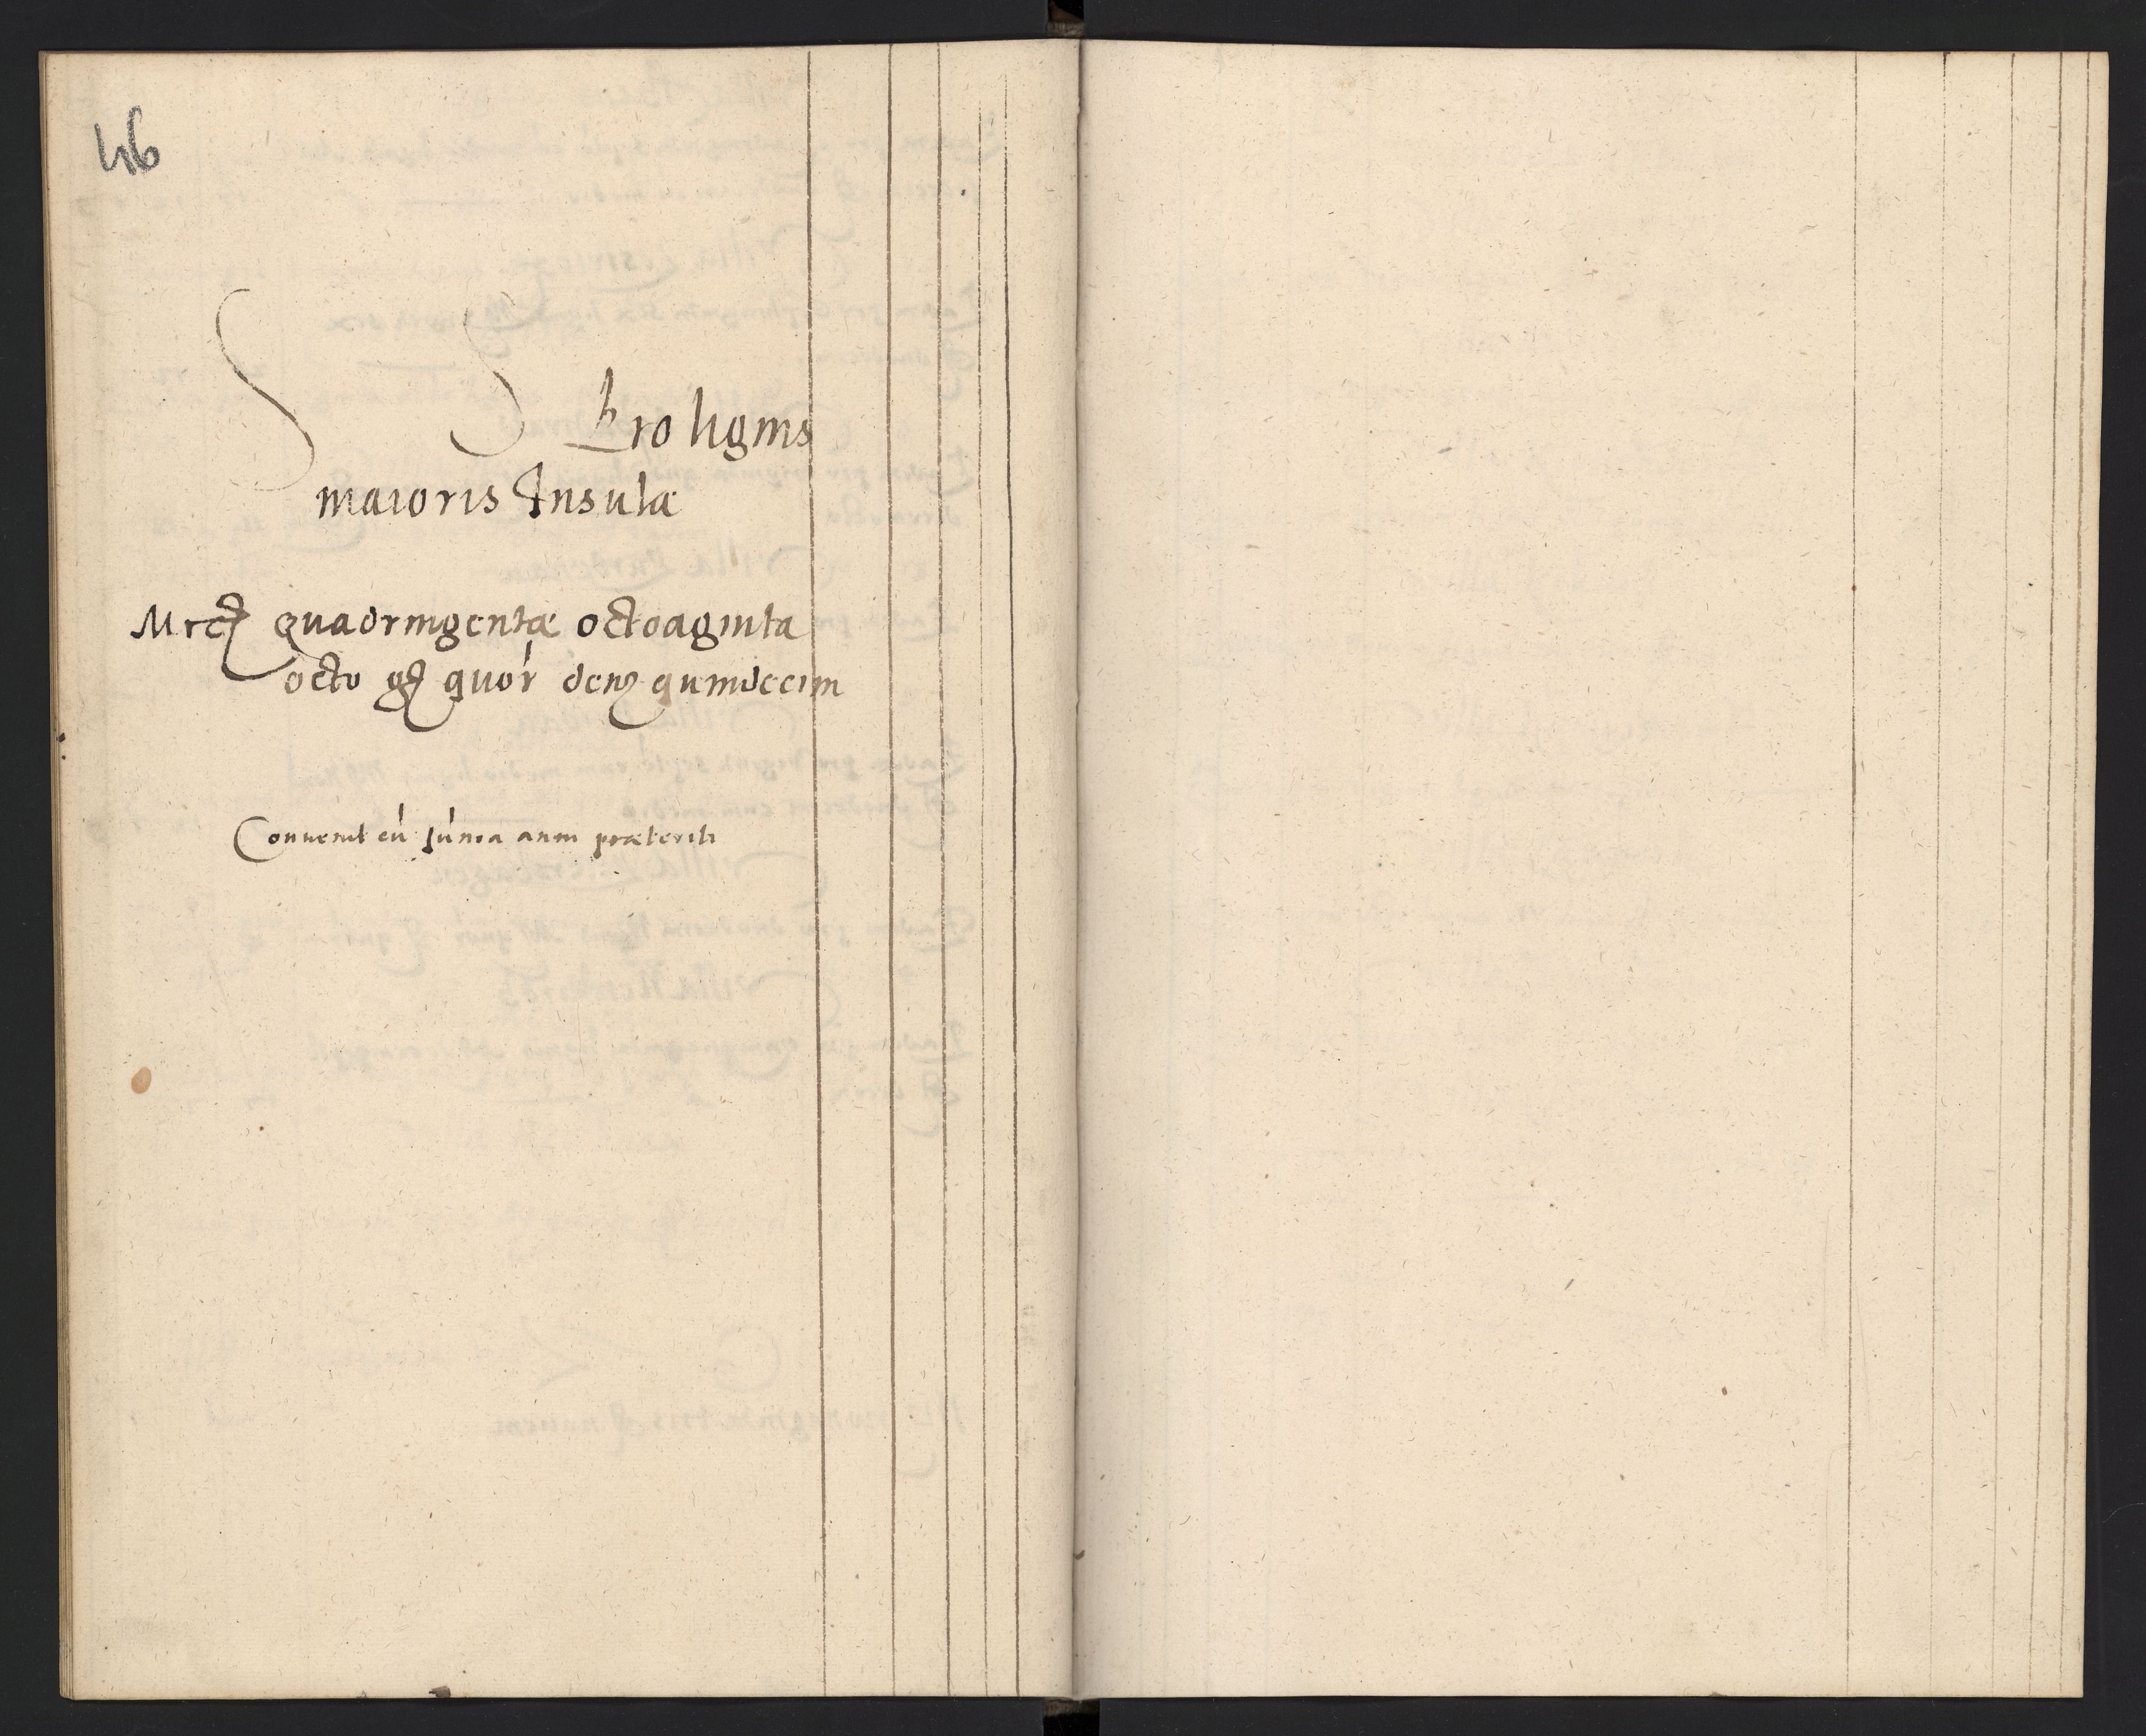 46
S S Pro lignis
maioris Insulæ
Mrc quadringentæ octoaginta
octo gr quor den quindecim
Conuenit cū sūma anni præteriti